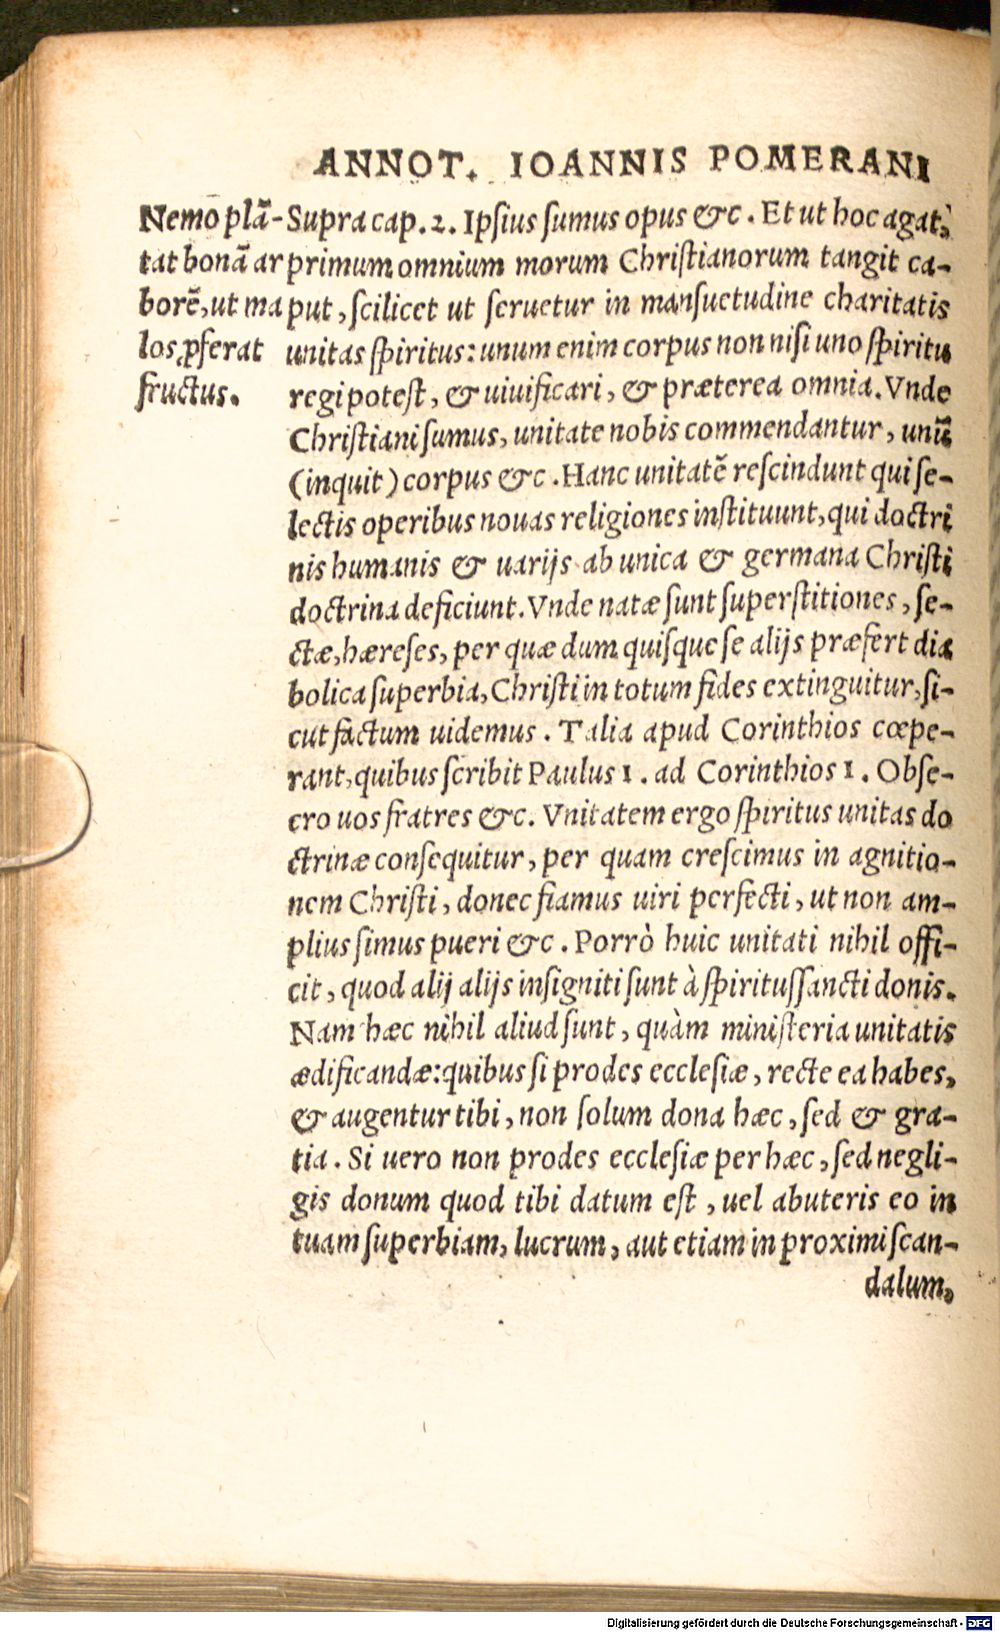 ANNOT. IOANNIS POMERANI
Nemo plā-
tat bonā ar
borē, ut ma
los ꝓferat
fructus.
Supra cap. 2. Ipſius ſumus opus &c. Et ut hoc agat,
primum omnium morum Chriſtianorum tangit ca-
put, ſcilicet ut ſeruetur in manſuetudine charitatis
unitas ſpiritus: unum enim corpus non niſi uno ſpiritu
regi poteſt, & uiuificari, & præterea omnia. Vnde
Chriſtiani ſumus, unitate nobis commendantur, unū
(inquit) corpus &c. Hanc unitatē reſcindunt qui ſe-
lectis operibus nouas religiones inſtituunt, qui doctri
nis humanis & uarijs ab unica & germana Chriſti
doctrina deficiunt. Vnde natæ ſunt ſuperſtitiones, ſe-
ctæ, hæreſes, per quæ dum quiſque ſe alijs præfert dia
bolica ſuperbia, Chriſti in totum fides extinguitur, ſi-
cut factum uidemus. Talia apud Corinthios cœpe-
rant, quibus ſcribit Paulus 1. ad Corinthios 1. Obſe-
cro uos fratres &c. Vnitatem ergo ſpiritus unitas do
ctrinæ conſequitur, per quam creſcimus in agnitio-
nem Chriſti, donec fiamus uiri perfecti, ut non am-
plius ſimus pueri &c. Porrò huic unitati nihil offi-
cit, quod alij alijs inſigniti ſunt à ſpiritusſancti donis.
Nam hæc nihil aliud ſunt, quàm miniſteria unitatis
ædificandæ: quibus ſi prodes eccleſiæ, recte ea habes,
& augentur tibi, non ſolum dona hæc, ſed & gra-
tia. Si uero non prodes eccleſiæ per hæc, ſed negli-
gis donum quod tibi datum eſt, uel abuteris eo in
tuam ſuperbiam, lucrum, aut etiam in proximi ſcan-
dalum,
Digitalisierung gefördert durch die Deutsche Forschungsgemeinschaft - DFG